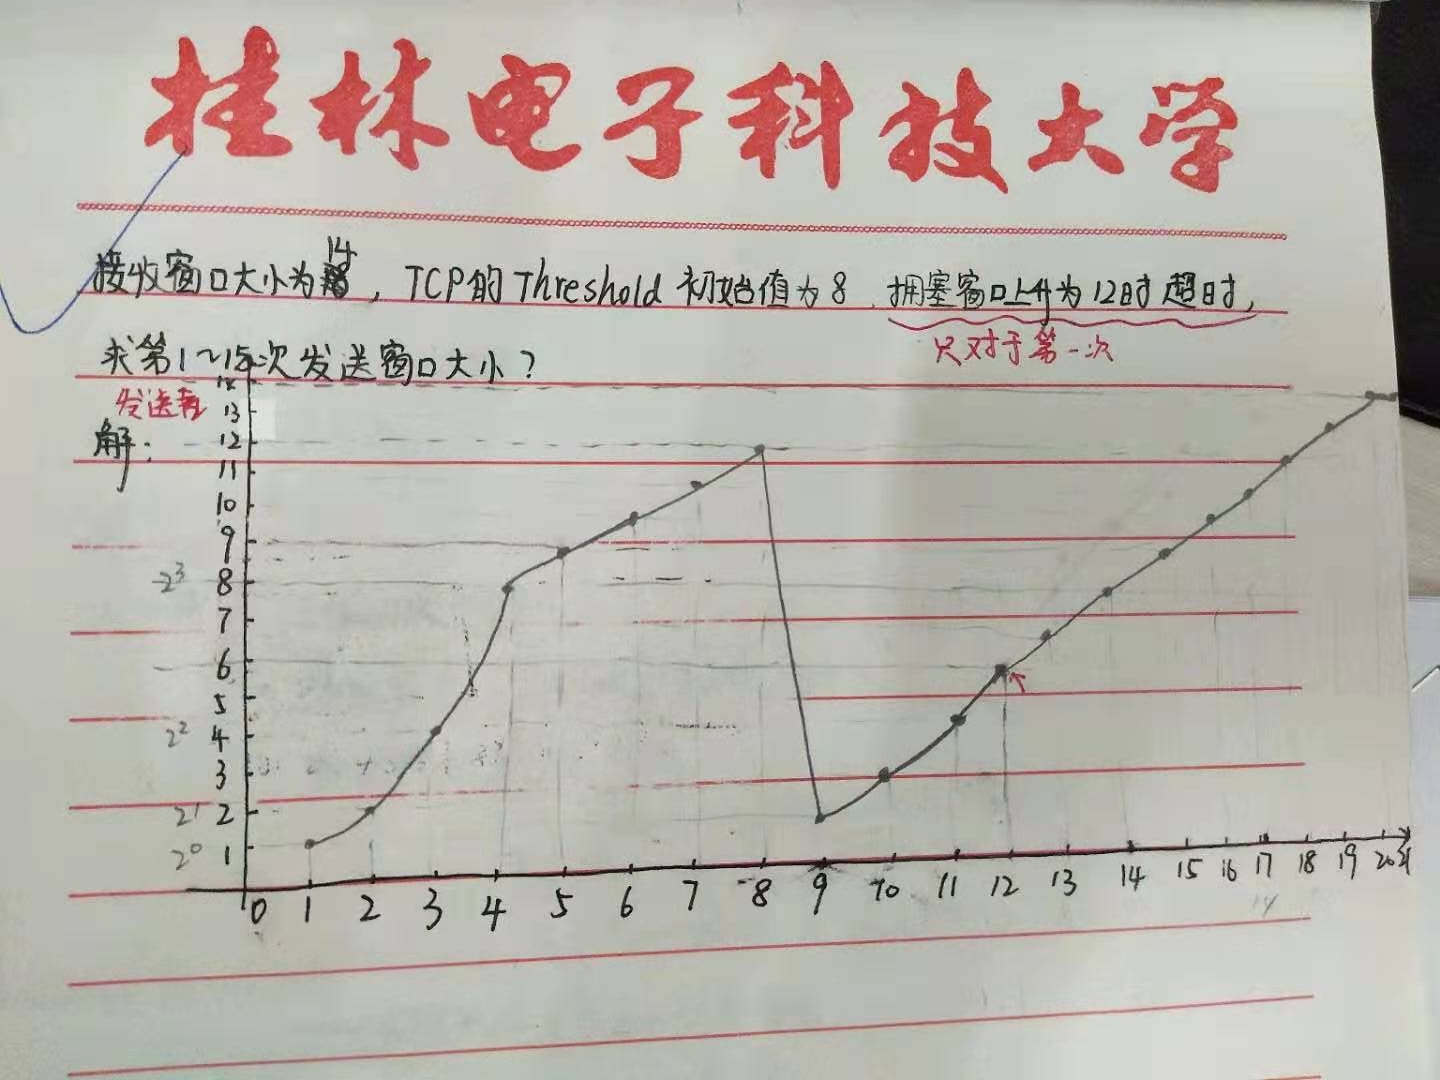 桂林电子科技大学
接收窗口大小为14，TCP的Threshold 初始值为8．拥塞窗口上升为12时超时，
只对于第一次
求第1~15次发送窗口大小？
发送
解：
14
13
12
11
10
9
2³ 8
7
6
5
2² 4
3
2¹ 2
2⁰ 1
0 1 2 3 4 5 6 7 8 9 10 11 12 13 14 15 16 17 18 19 20 21